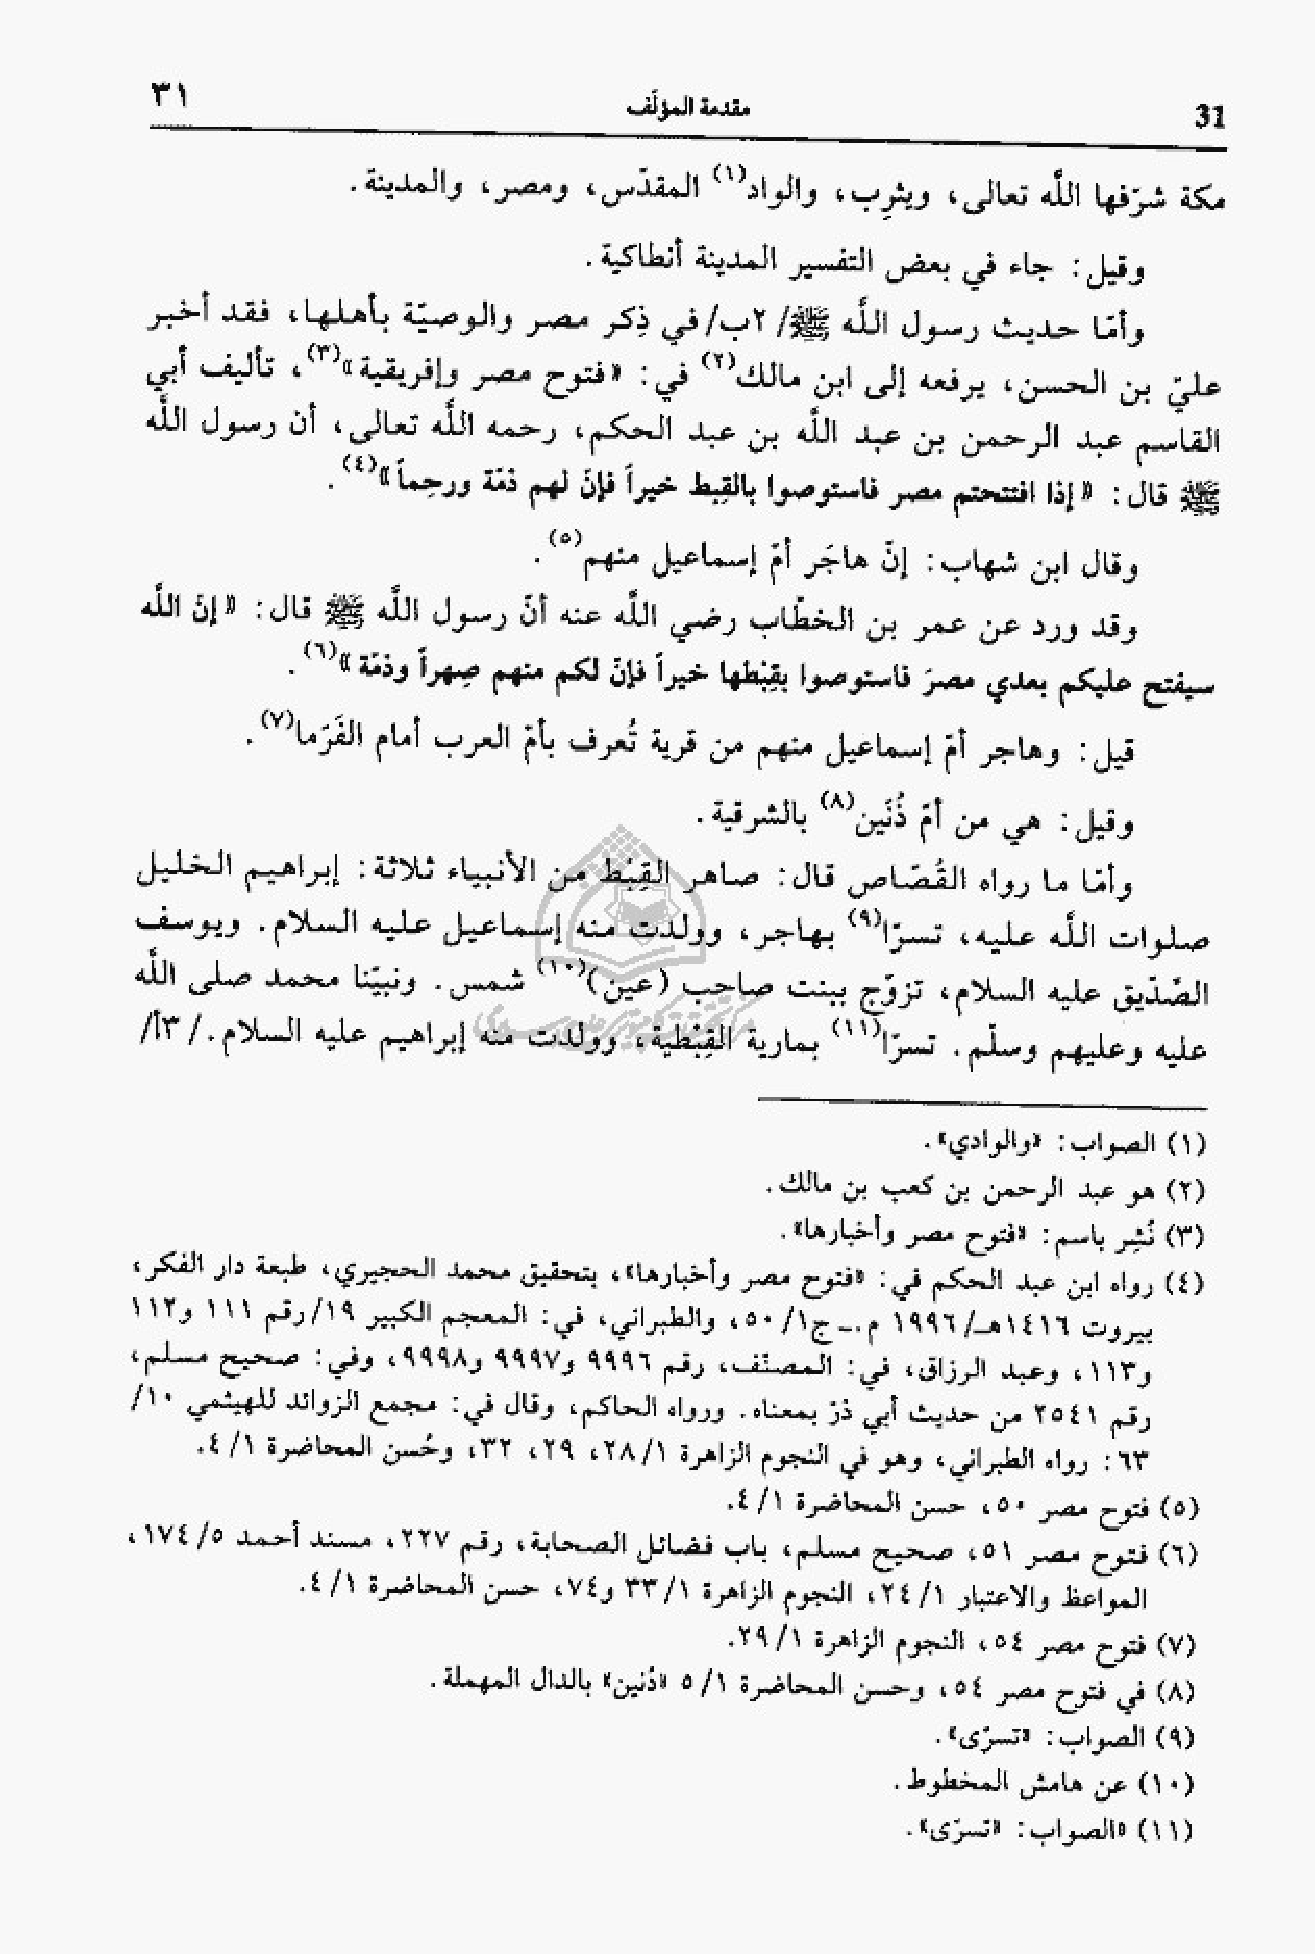 31 مقدمة المؤلّف ٣١
مكة شرّفها اللَّه تعالى، ويثرِب، والواد(١) المقدّس، ومصر، والمدينة.
وقيل: جاء في بعض التفسير المدينة أنطاكية.
وأمّا حديث رسول اللَّه ﷺ/ ٢ب/ في ذِكر مصر والوصيّة بأهلها، فقد أخبر
عليّ بن الحسن، يرفعه إلى ابن مالك(٢) في: «فتوح مصر وإفريقية»(٣)، تأليف أبي
القاسم عبد الرحمن بن عبد اللَّه بن عبد الحكم، رحمه اللَّه تعالى، أن رسول اللَّه
ﷺ قال: «إذا افتتحتم مصر فاستوصوا بالقِبط خيراً فإنّ لهم ذمّة ورحِماً»(٤).
وقال ابن شهاب: إنّ هاجَر أمّ إسماعيل منهم(٥).
وقد ورد عن عمر بن الخطّاب رضي اللَّه عنه أنّ رسول اللَّه ﷺ قال: «إنّ اللَّه
سيفتح عليكم بعدي مصرَ فاستوصوا بقِبْطها خيراً فإنّ لكم منهم صِهراً وذمّة»(٦).
قيل: وهاجر أمّ إسماعيل منهم من قرية تُعرف بأمّ العرب أمام الفَرَما(٧).
وقيل: هي من أمّ ذُنَين(٨) بالشرقية.
وأمّا ما رواه القُصّاص قال: صاهر القِبْط من الأنبياء ثلاثة: إبراهيم الخليل
صلوات اللَّه عليه، تسرّا(٩) بهاجر، وولدت منه إسماعيل عليه السلام. ويوسف
الصّدّيق عليه السلام، تزوّج ببنت صاحب (عين)(١٠) شمس. ونبيّنا محمد صلى اللَّه
عليه وعليهم وسلّم. تسرّا(١١) بمارية القِبْطية، وولدت منه إبراهيم عليه السلام./ ٣أ/
(١) الصواب: «والوادي».
(٢) هو عبد الرحمن بن كعب بن مالك.
(٣) نُشِر باسم: «فتوح مصر وأخبارها».
(٤) رواه ابن عبد الحكم في: «فتوح مصر وأخبارها»، بتحقيق محمد الحجيري، طبعة دار الفكر،
بيروت ١٤١٦هـ/ ١٩٩٦ م.ـ ج١/ ٥٠، والطبراني، في: المعجم الكبير ١٩/ رقم ١١١ و١١٢
و١١٣، وعبد الرزاق، في: المصنّف، رقم ٩٩٩٦ و٩٩٩٧ و٩٩٩٨، وفي: صحيح مسلم،
رقم ٢٥٤١ من حديث أبي ذرّ بمعناه. ورواه الحاكم، وقال في: مجمع الزوائد للهيثمي ١٠/
٦٣: رواه الطبراني، وهو في النجوم الزاهرة ١/ ٢٨، ٢٩، ٣٢، وحُسن المحاضرة ١/ ٤.
(٥) فتوح مصر ٥٠، حسن المحاضرة ١/ ٤.
(٦) فتوح مصر ٥١، صحيح مسلم، باب فضائل الصحابة، رقم ٢٢٧، مسند أحمد ٥/ ١٧٤،
المواعظ والاعتبار ١/ ٢٤، النجوم الزاهرة ١/ ٣٣ و٧٤، حسن المحاضرة ١/ ٤.
(٧) فتوح مصر ٥٤، النجوم الزاهرة ١/ ٢٩.
(٨) في فتوح مصر ٥٤، وحسن المحاضرة ١/ ٥ «دُنين» بالدال المهملة.
(٩) الصواب: «تسرّى».
(١٠) عن هامش المخطوط.
(١١) «الصواب: «تسرّى».